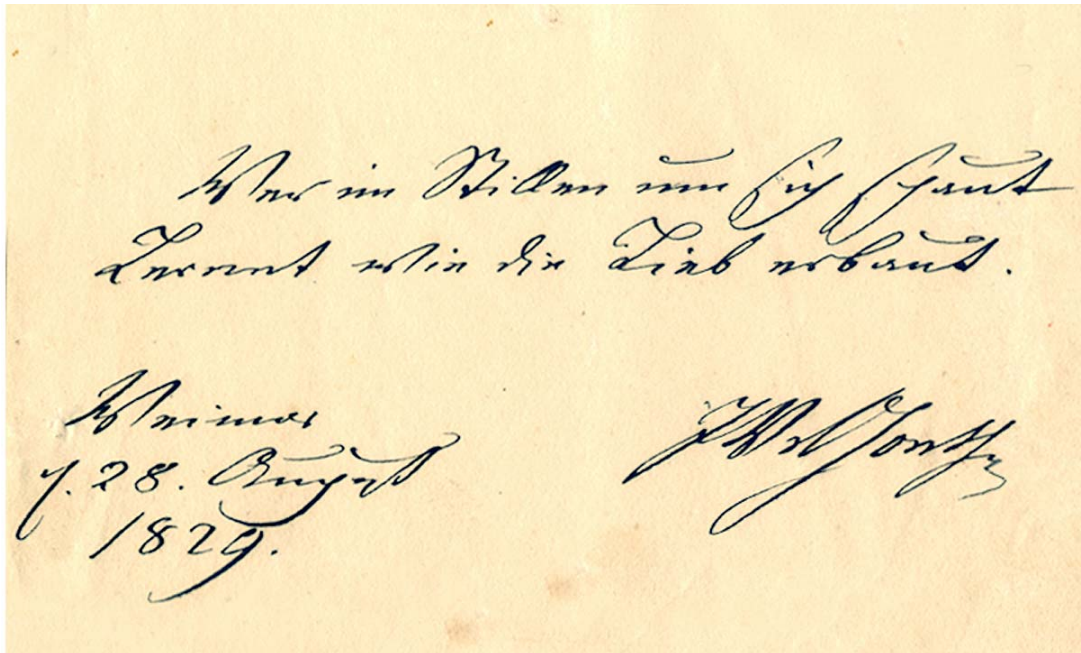 Wer im Stillen um sich schaut
Lernet wie die Lieb erbaut.
Weimar
d. 28. August
1829.
JWvGoethe